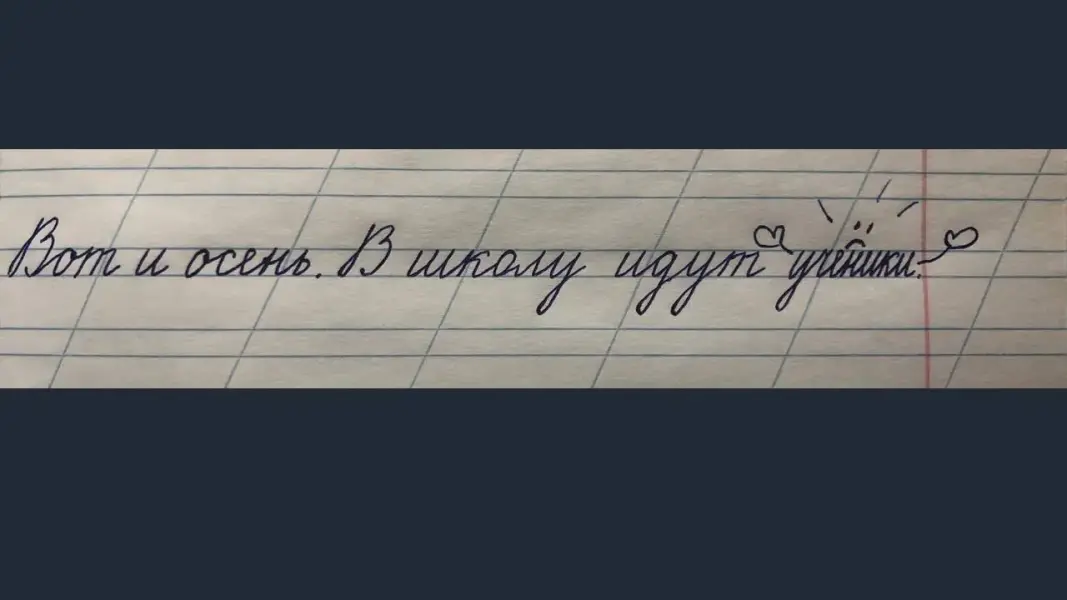 Вот и осень. В школу идут ученики.